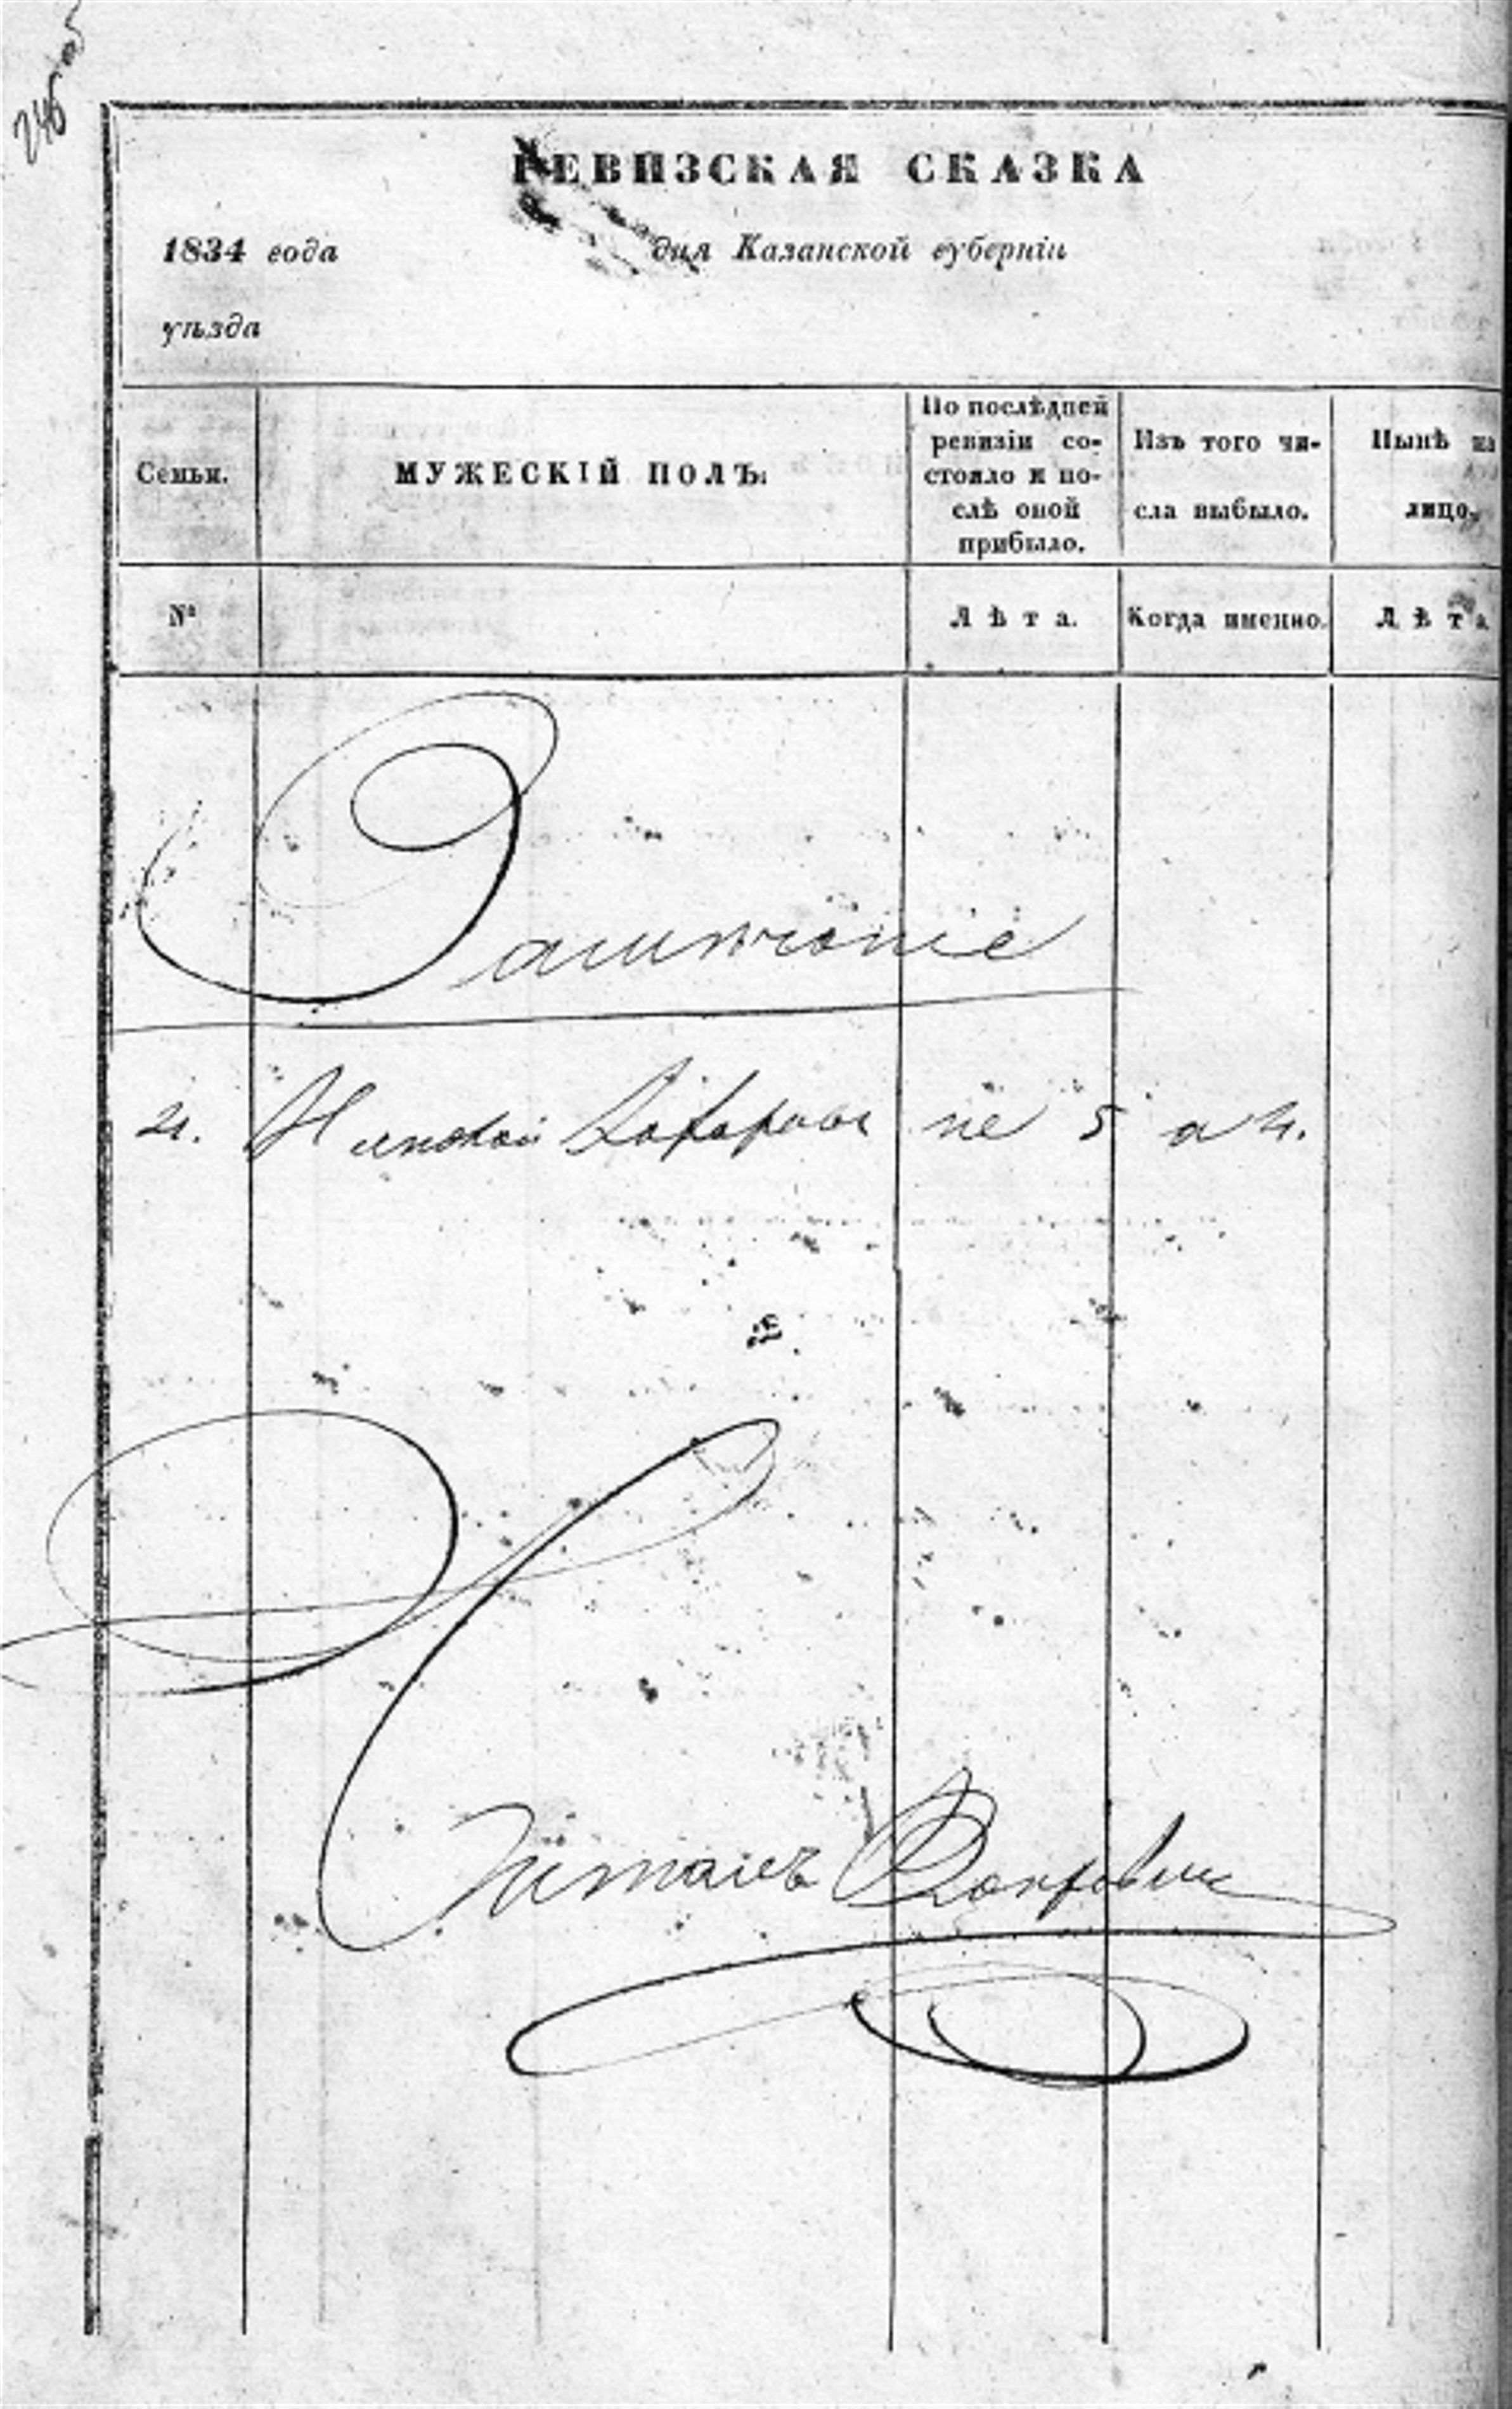 246 об
РЕВИЗСКАЯ СКАЗКА
1834 года дня Казанской губерніи
уѣзда
Семьи.
МУЖЕСКІЙ ПОЛЪ.
По послѣдней ревизіи со-
стояло и по-
слѣ оной
прибыло.
Изъ того чи-
сла выбыло.
Нынѣ на
лицо.
№
Лѣта.
Когда именно.
Лѣта
Замѣчаніе
4. не 5 а 4.
Читалъ